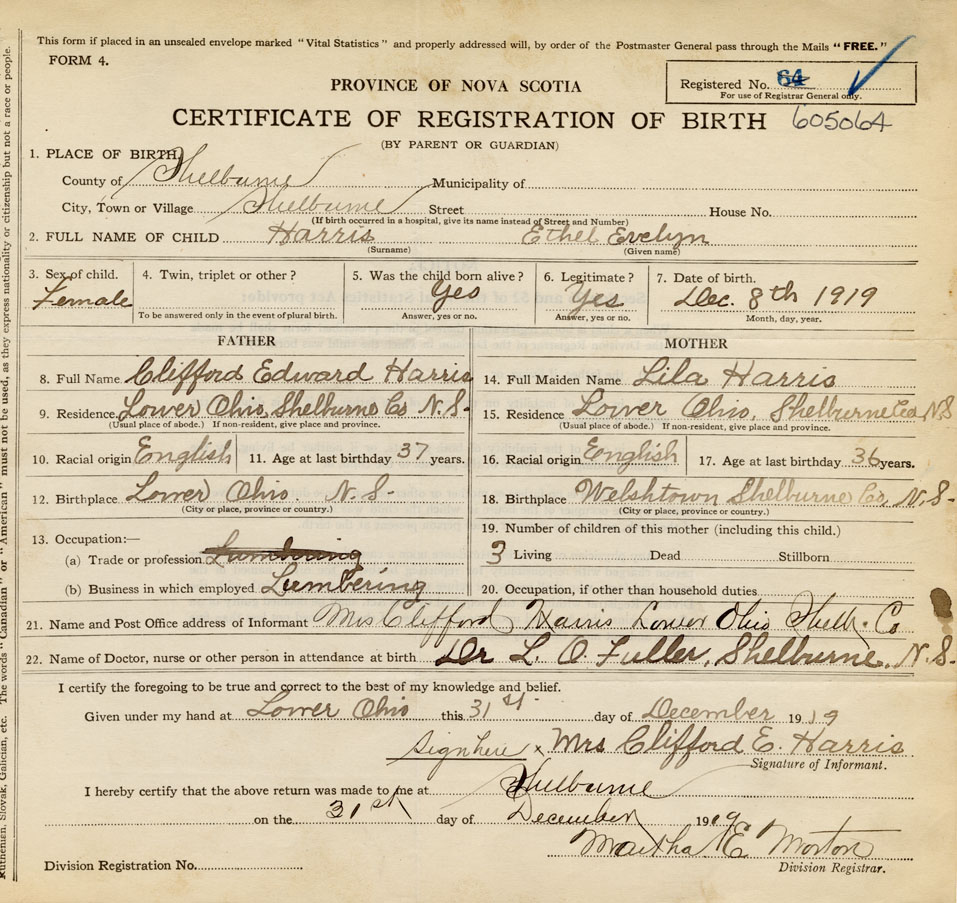 This form if placed in an unsealed envelope marked "Vital Statistics" and properly addressed will, by order of the Postmaster General pass through the Mails "FREE."
FORM 4.
Registered No. 64
For use of Registrar General only.
PROVINCE OF NOVA SCOTIA
CERTIFICATE OF REGISTRATION OF BIRTH 605064
(BY PARENT OR GUARDIAN)
1. PLACE OF BIRTH,
County of Shelburne Municipality of
City, Town or Village Shelburne Street House No.
(If birth occurred in a hospital, give its name instead of Street and Number)
2. FULL NAME OF CHILD Harris Ethel Evelyn
(Surname) (Given name)
3. Sex of child. 4. Twin, triplet or other? 5. Was the child born alive? 6. Legitimate? 7. Date of birth.
Female Yes Yes Dec. 8th 1919
To be answered only in the event of plural birth. Answer, yes or no. Answer, yes or no. Month, day, year.
FATHER MOTHER
8. Full Name Clifford Edward Harris 14. Full Maiden Name Lila Harris
9. Residence Lower Ohio, Shelburne Co N.S- 15. Residence Lower Ohio, Shelburne Co, NS
(Usual place of abode.) If non-resident, give place and province. (Usual place of abode.) If non-resident, give place and province.
10. Racial origin English 11. Age at last birthday 37 years. 16. Racial origin English 17. Age at last birthday 36 years.
12. Birthplace Lower Ohio. N.S- 18. Birthplace Welshtown Shelburne Co, N.S-
(City or place, province or country.) (City or place, province or country.)
13. Occupation:— 19. Number of children of this mother (including this child.)
(a) Trade or profession Lumbering 3 Living Dead Stillborn
(b) Business in which employed Lumbering 20. Occupation, if other than household duties
21. Name and Post Office address of Informant Mrs Clifford Harris Lower Ohio Shelb. Co
22. Name of Doctor, nurse or other person in attendance at birth Dr L. O. Fuller, Shelburne, N.S.
I certify the foregoing to be true and correct to the best of my knowledge and belief.
Given under my hand at Lower Ohio this 31st day of December 1919
Sign here x Mrs Clifford E. Harris
Signature of Informant.
I hereby certify that the above return was made to me at Shelburne
on the 31st day of December 1919
Martha E Morton
Division Registration No. Division Registrar.
Ruthenian, Slovak, Galician, etc. The words "Canadian" or "American" must not be used, as they express nationality or citizenship but not a race or people.